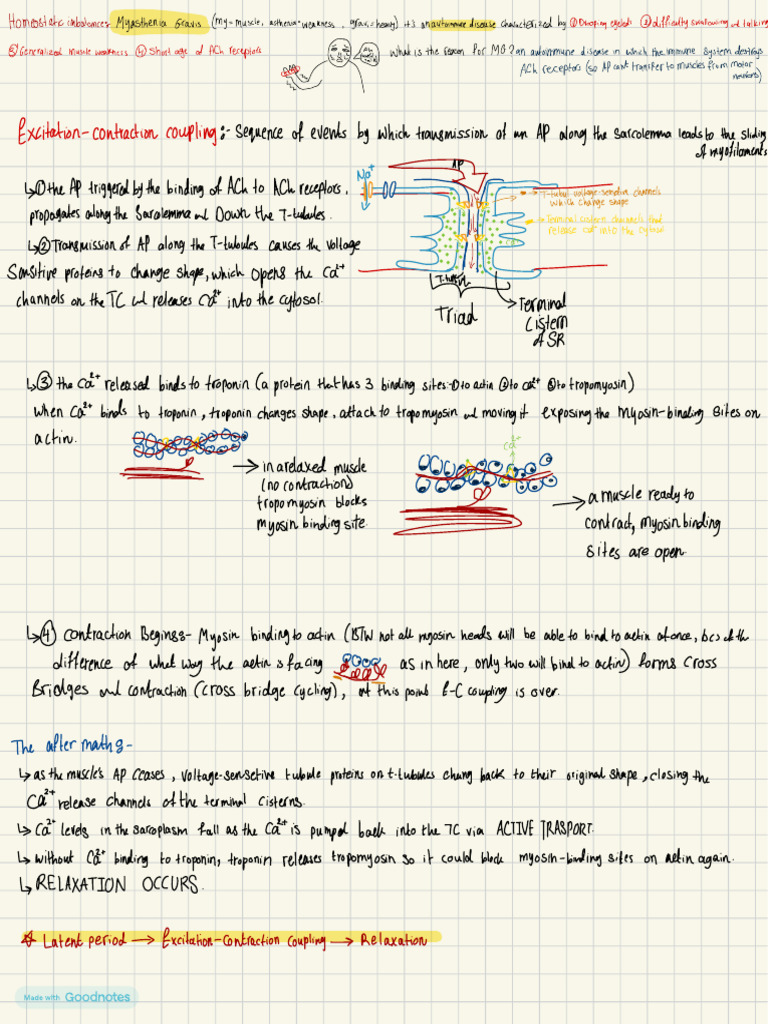 Homeostatic imbalances Myasthenia Gravis (my= muscle, asthenia=weakness, gravis=heavy) it is an autoimmune disease characterized by ① Drooping eyelids ② difficulty swallowing and talking
③ Generalized muscle weakness ④ Shortage of ACh receptors
What is the reason for MG? an autoimmune disease in which the immune system destroys
ACh receptors (so AP cant transfer to muscles from motor
neurons)
Excitation-contraction coupling:- Sequence of events by which transmission of an AP along the sarcolemma leads to the sliding
of myofilaments
AP
Na+
↳① the AP triggered by the binding of ACh to ACh receptors,
propagates along the Sarcolemma and Down the T-tubules.
T-tubule voltage-sensitive channels
which change shape
Terminal cistern channels that
release Ca2+ into the cytosol
↳② Transmission of AP along the T-tubules causes the voltage
Sensitive proteins to change shape, which opens the Ca2+
channels on the TC and releases Ca2+ into the cytosol.
T-tubule
Triad
Terminal
Cistern
of SR
↳③ the Ca2+ released binds to troponin (a protein that has 3 binding sites:① to actin ② to Ca2+ ③ to tropomyosin)
when Ca2+ binds to troponin, troponin changes shape, attach to tropomyosin and moving it exposing the Myosin-binding sites on
actin.
Ca2+
→ in a relaxed muscle
(no contraction)
tropomyosin blocks
myosin binding site.
→ a muscle ready to
contract, myosin binding
sites are open.
↳④ Contraction Begins:- Myosin binding to actin (BTW not all myosin heads will be able to bind to actin at once, bcs of the
difference of what way the actin is facing as in here, only two will bind to actin) forms Cross
Bridges and contraction (cross bridge cycling), at this point E-C coupling is over.
The after math:-
↳ as the muscle's AP ceases, voltage-sensetive tubule proteins on t-tubules chang back to their original shape, closing the
Ca2+ release channels of the terminal cisterns.
↳ Ca2+ levels in the sarcoplasm fall as the Ca2+ is pumped back into the TC via ACTIVE TRASPORT.
↳ without Ca2+ binding to troponin, troponin releases tropomyosin so it could block myosin-binding sites on actin again.
↳ RELAXATION OCCURS.
☆ Latent period → Excitation-Contraction coupling → Relaxation
Made with Goodnotes